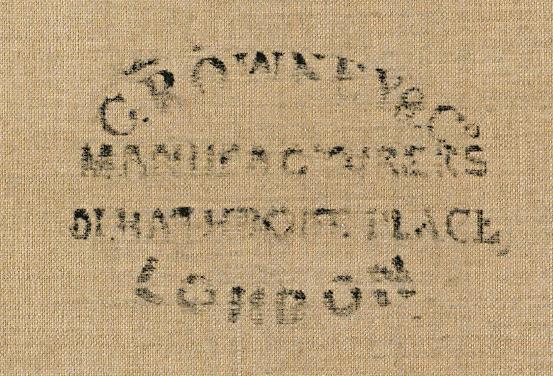 G. ROWNEY & Co.
MANUFACTURERS
51 RATHBONE PLACE,
LONDON